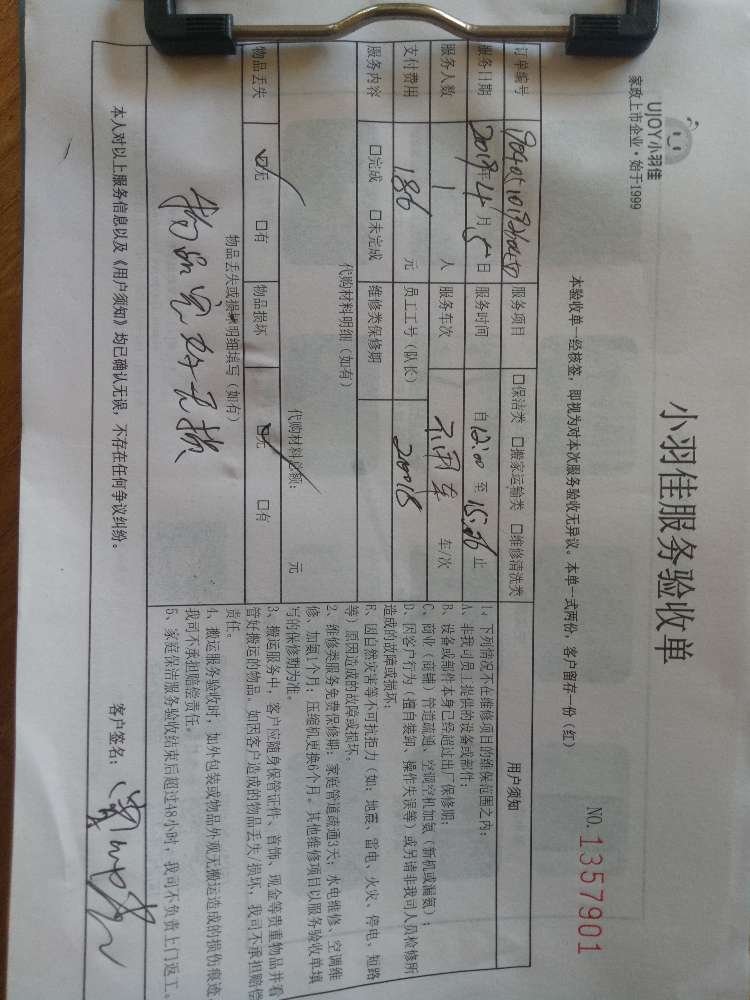 UJOY小羽佳
家政上市企业·始于1999
小羽佳服务验收单
NO.1357901
本验收单一经核签，即视为对本次服务验收无异议。本单一式两份，客户留存一份（红）
订单编号 服务项目 □保洁类 □搬家运输类 □维修清洗类 用户须知
服务日期 2019年4月5日 服务时间 自12:00至15:06止
服务人数 1人 服务车次 不用车 车/次
支付费用 186元 员工工号（队长） 20018
服务内容 □完成 □未完成 维修类保修期
代购材料明细（如有）
代购材料总额： 元
物品丢失 ☑无 □有 物品损坏 ☑无 □有
物品丢失或损坏明细填写（如有）
物品完好无损
1、下列情况不在维修项目的维保范围之内：
A、非我司员工提供的设备或部件；
B、设备或部件本身已经超过出厂保修期；
C、商业（商铺）管道疏通、空调空机加氨（新机或漏氨）；
D、因客户行为（擅自装卸、操作失误等）或另请非我司人员检修所
造成的故障或损坏；
E、因自然灾害等不可抗拒力（如：地震、雷电、火灾、停电、短路
等）原因造成的故障或损坏。
2、维修类服务免费保修期：家庭管道疏通3天；水电维修、空调维
修、加氨1个月；压缩机更换6个月。其他维修项目以服务验收单填
写的保修期为准。
3、搬运服务中，客户应随身保管证件、首饰、现金等贵重物品并看
管好搬运的物品。如因客户造成的物品丢失/损坏，我司不承担赔偿
责任。
4、搬运服务验收时，如外包装或物品外观无搬运造成的损伤痕迹，
我司不承担赔偿责任。
5、家庭保洁服务验收结束后超过48小时，我司不负责上门返工。
本人对以上服务信息以及《用户须知》均已确认无误，不存在任何争议纠纷。 客户签名：